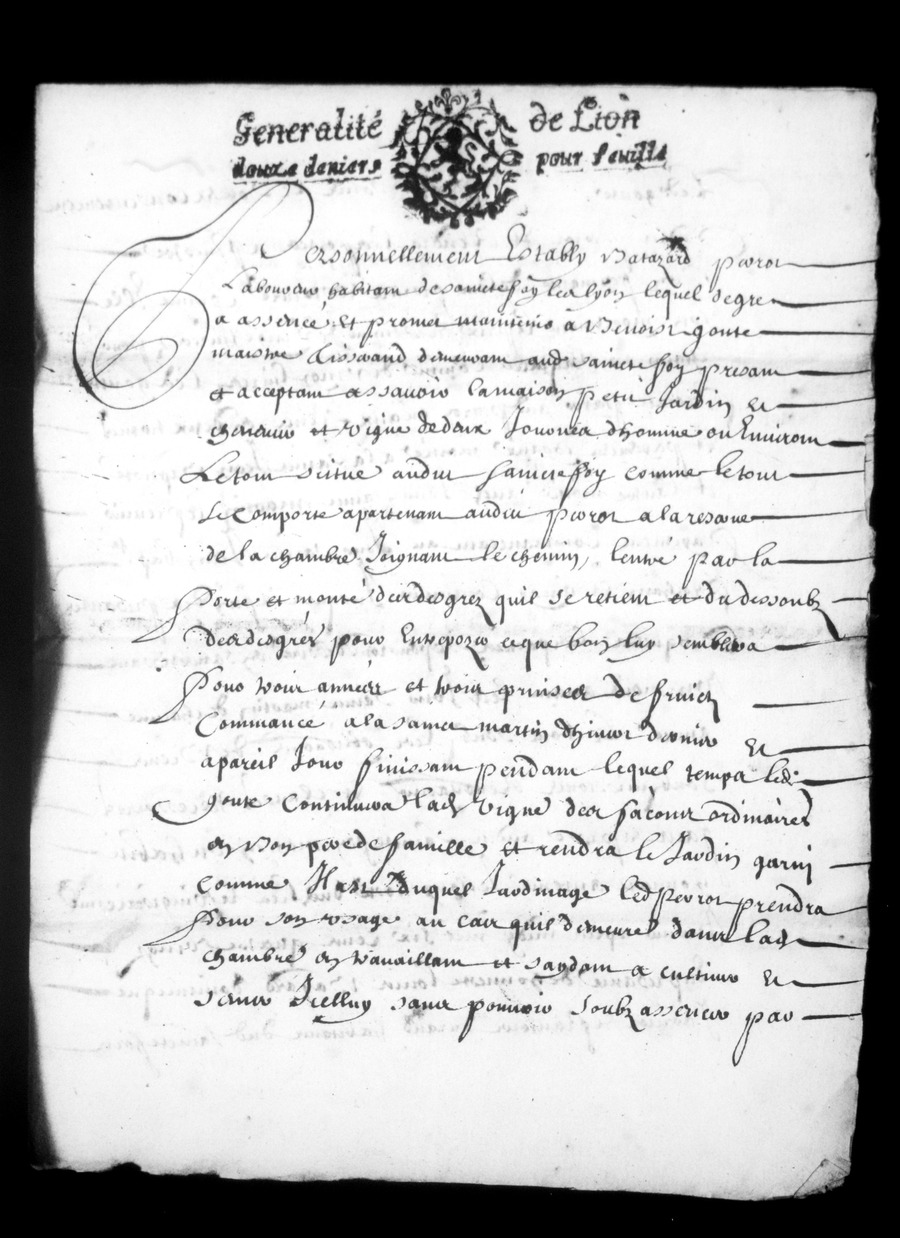 Generalité de Lion
douze deniers pour feuille
Personnellement Estably Batazard perrot
Laboureur habitant de saincte foy les lyon lequel degre
a assencé et promet maintenir a Benoist goute
maistre Tisserand demeurant aud saincte foy present
et acceptant assavoir la maison petit Jardin et
chenevier et vigne de deux Journées dhomme ou Environ
Le tout situé audit saincte foy comme le tout
Se Comporte apartenant audit perrot a la reserve
de la chambre Joignant le chemin, lentree par la
Porte et monté des degrez quil se retient et du dessoubz
des degrez pour Entreposer ce que bon luy semblera
Pour trois années et trois prinses de fruictz
Commancé a la saint martin dhiver dernier et
a pareil Jour finissant pendant lequel temps led
goute Continuera lad vigne des facons ordinaires
en bon pere de famille et rendra le Jardin garni
Comme Il est duquel Jardinage led perrot prendra
Pour son usage au cas quil demeure dans lad
chambre en travaillant et saydant a cultiver et
semer Icelluy sans pouvoir soubz assencer par